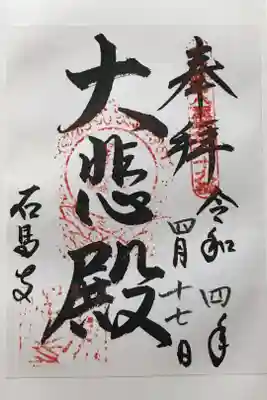 奉拝
令和四年
四月十七日
大悲殿